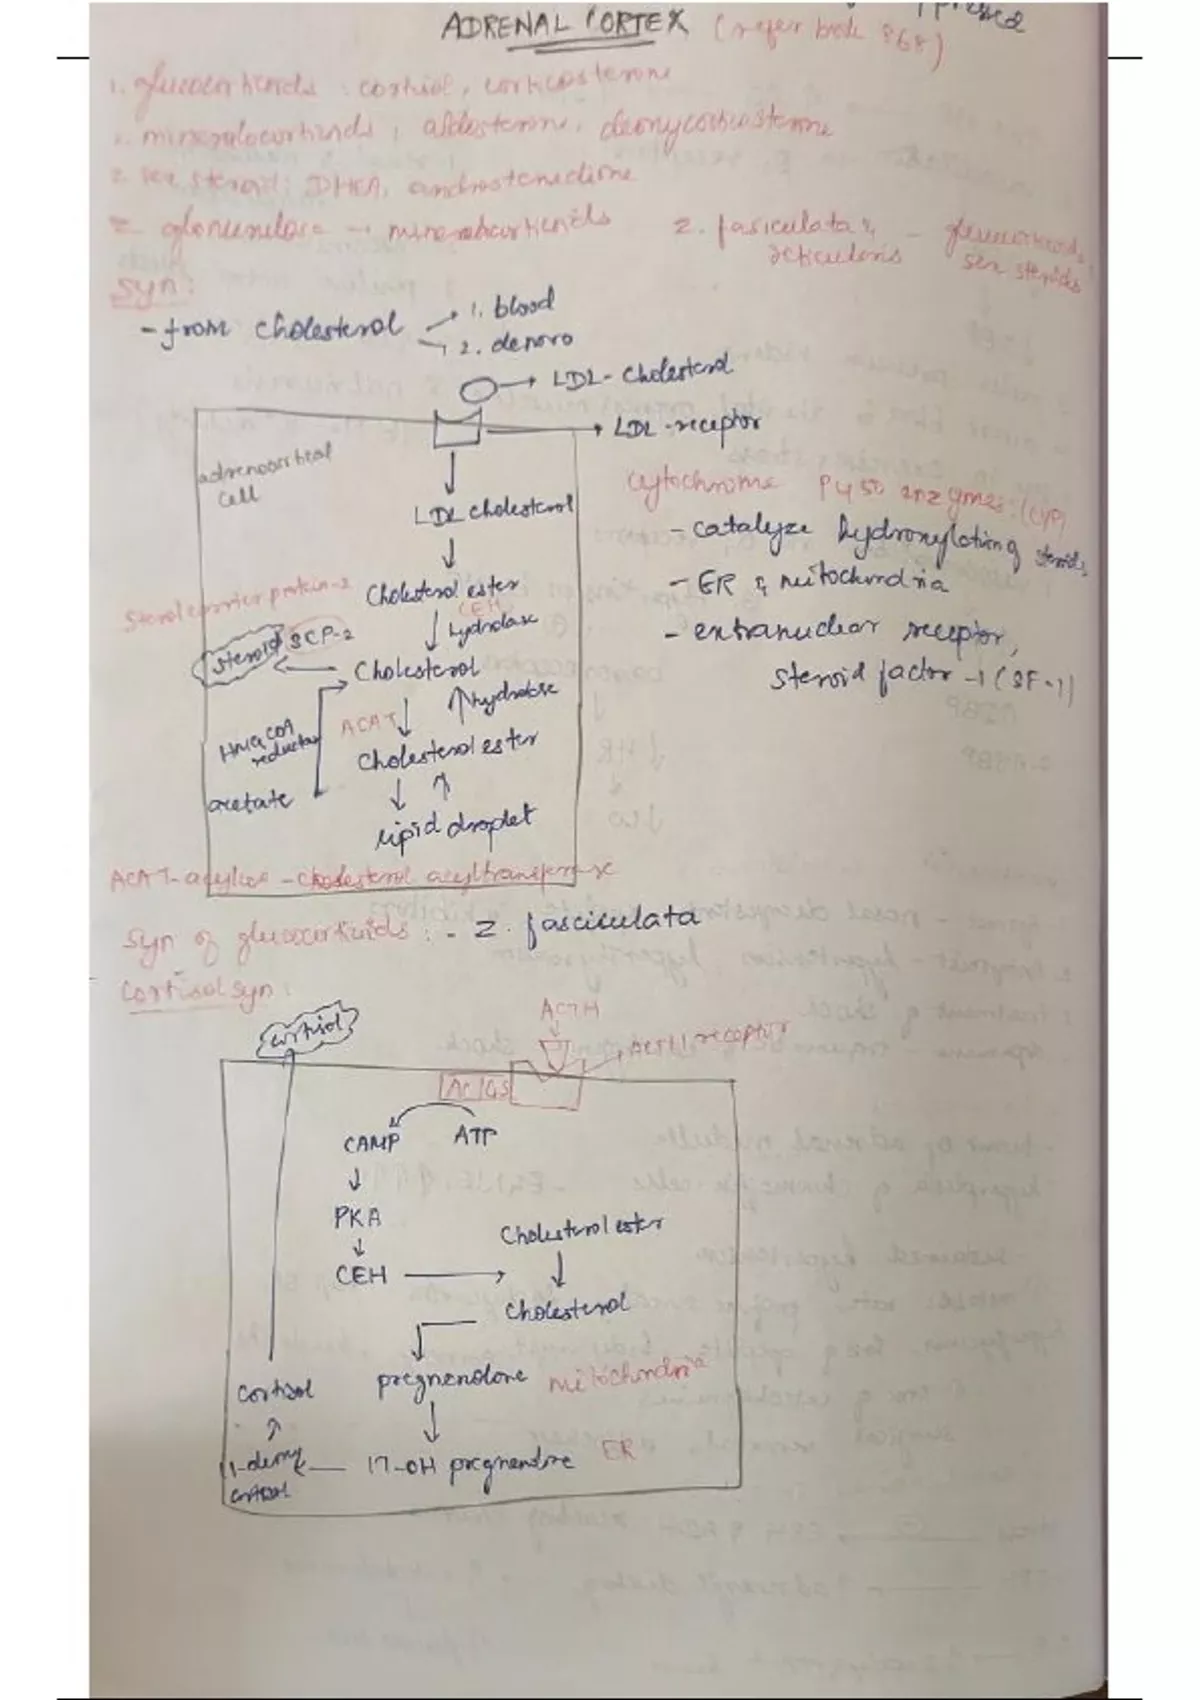 ADRENAL CORTEX (refer book 868)
1. glucocorticoids : cortisol, corticosterone
2. mineralocorticoids ; aldosterone, deoxycorticosterone
3. sex steroid: DHEA, androstenedione
Z glomerulosa → mineralocorticoids
Z. fasiculata &
reticularis
- glucocorticoids,
sex steroids
Syn:
- from cholesterol
1. blood
2. denovo
LDL - Cholesterol
LDL - receptor
adrenocortical
cell
LDL Cholesterol
Cholesterol ester
CEH
hydrolase
Sterol carrier protein-2
SCP-2
steroid
Cholesterol
hydrolase
ACAT
HMG COA
reductase
Cholesterol ester
acetate
lipid droplet
cytochrome P450 enzymes: (CYP)
- catalyze hydroxylating steroids
- ER & mitochondria
- extranuclear receptor,
steroid factor -1 (SF-1)
ACAT- - cholesterol acyltransferase
Syn of glucocorticoids : - Z. fasciculata
Cortisol syn :
cortisol
ACTH
ACTH receptor
AC GS
CAMP
ATP
PKA
CEH
Cholesterol ester
Cholesterol
pregnenolone mitochondria
cortisol
17-OH pregnenolone ER
11-deoxy
cortisol